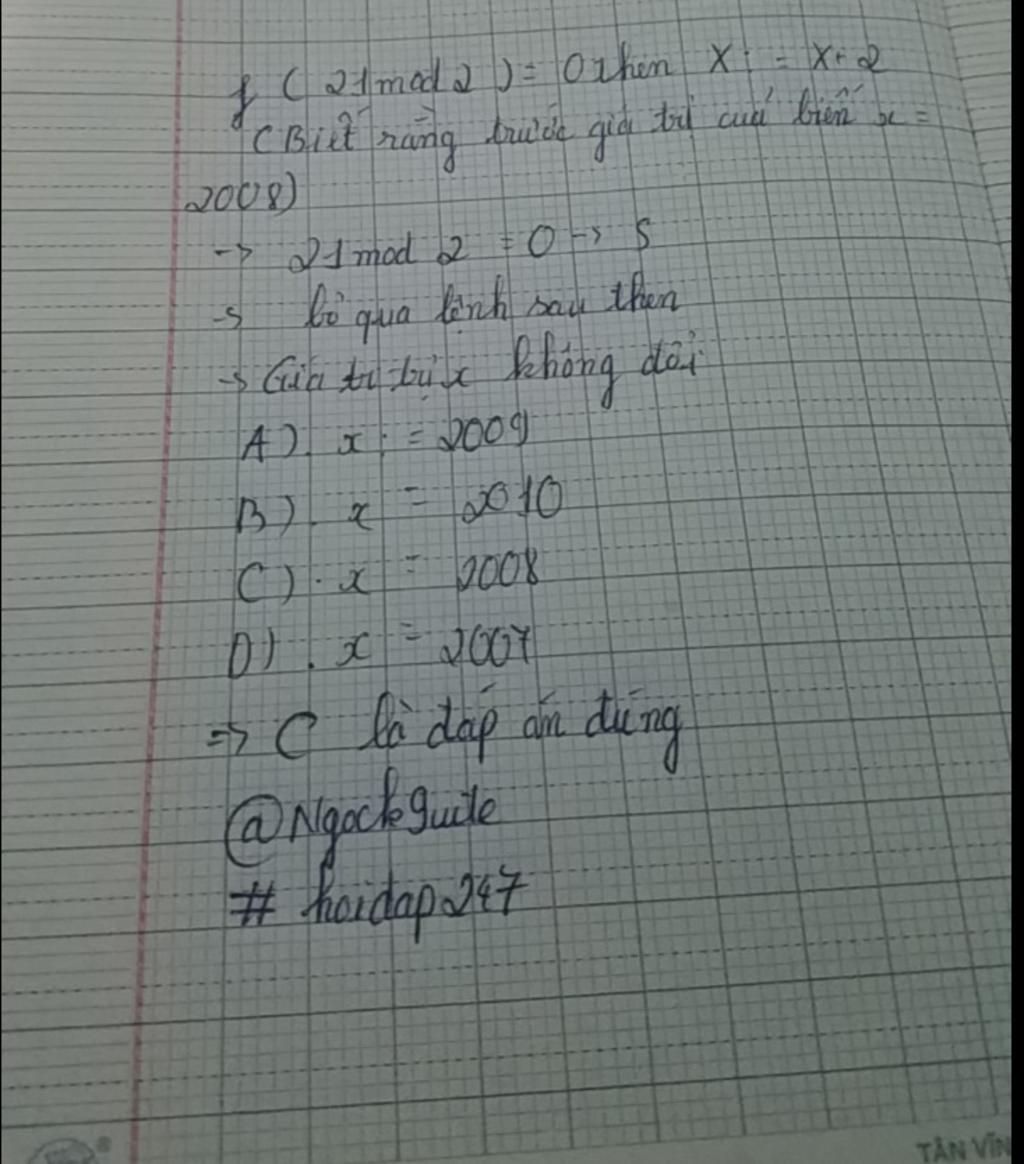 if (21 mod 2) = 0 then X := X+2
(Biết rằng trước giá trị của biến x =
2008)
-> 21 mod 2 = 0 -> S
-> bỏ qua lệnh sau then
-> Giá trị x không đổi
A). x = 2009
B). x = 2010
C). x = 2008
D). x = 2007
=> C là đáp án đúng
@Ngock
# hoidap247
TÂN VĨN